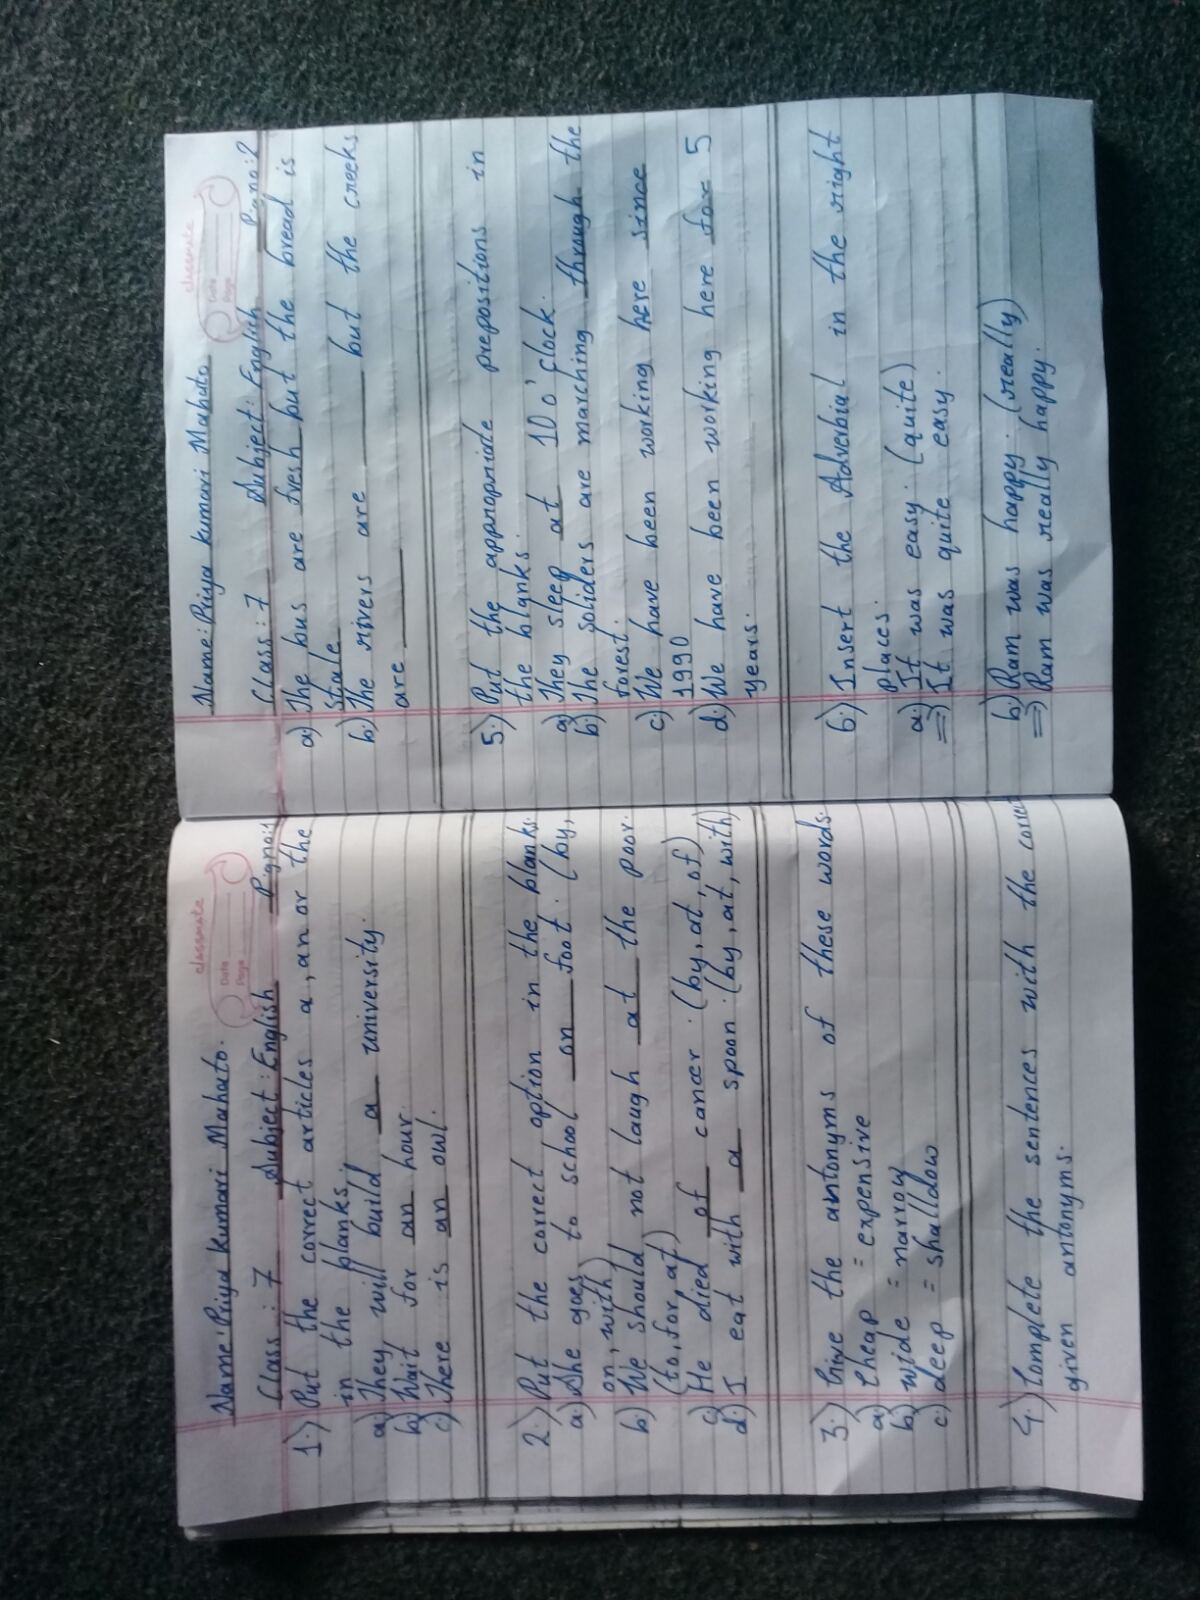 classmate
Date
Page
Name: Priya Kumari Mahato.
Class: 7 Subject: English Pgno:1
1.) Put the correct articles a, an or the
in the planks.
a) They will build a university.
b) Wait for an hour.
c) There is an owl.
2.) Put the correct option in the blanks.
a.) She goes to school on foot. (by,
on, with)
b) We should not laugh at the poor.
(to, for, at)
c) He died of cancer. (by, at, of)
d.) I eat with a spoon. (by, at, with)
3.) Give the antonyms of these words.
a) Cheap = expensive
b) wide = narrow
c) deep = shalldow
4.) Complete the sentences with the correct
given antonyms.
classmate
Date
Page
Name: Priya kumari Mahato
Class: 7 Subject: English Pgno:2
a) The bus are fresh but the bread is
stale
b) The rivers are ____ but the creeks
are ____
5.) Put the appropriate prepositions in
the blanks.
a) They sleep at 10 o'clock.
b) The soliders are marching through the
forest.
c) We have been working here since
1990
d.) We have been working here for 5
years.
6.) Insert the Adverbial in the right
places.
a.) It was easy. (quite)
=) It was quite easy.
b) Ram was happy. (really)
=) Ram was really happy.